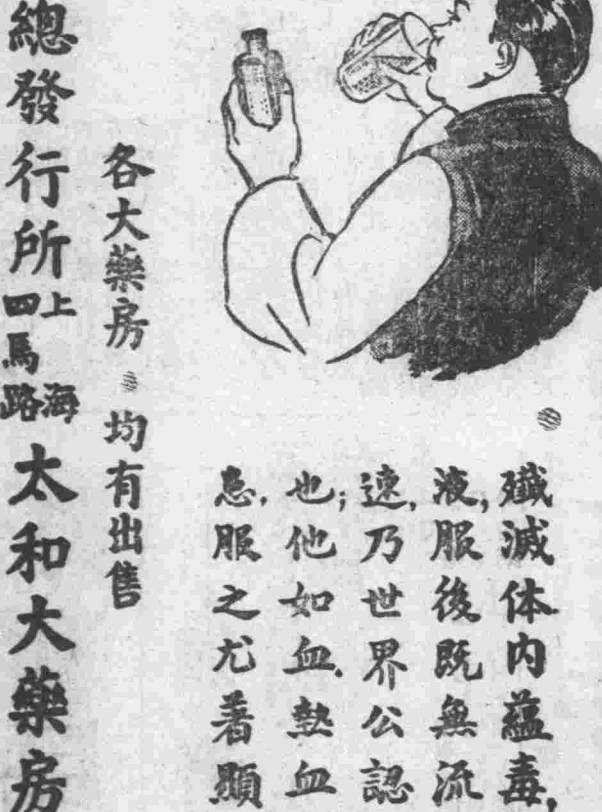 殲滅体內蘊毒，
液，服後既無流
速，乃世界公認
也；他如血熱血
患，服之尤著顯
各大藥房 均有出售
總發行所 上海四馬路 太和大藥房